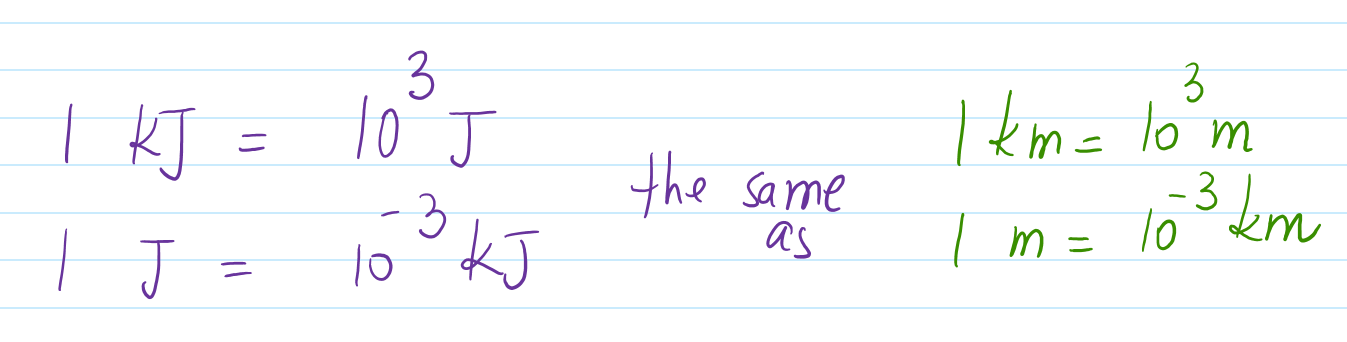 1 kJ = 10³ J
1 J = 10⁻³ kJ
the same
as
1 km = 10³ m
1 m = 10⁻³ km